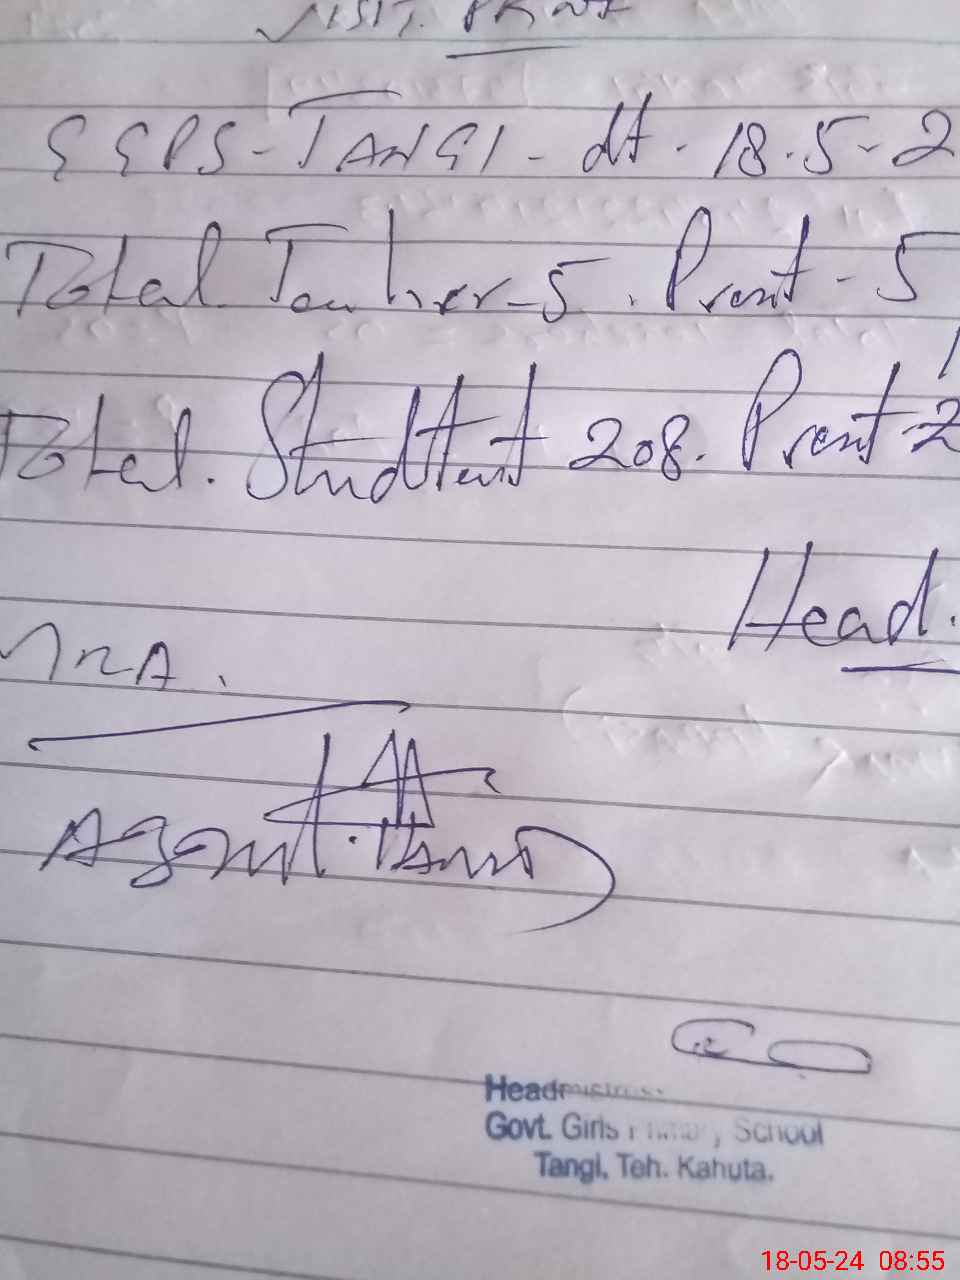 VISIT. PRNT
GGPS-TANGI - dt. 18.5-2
Total. Teacher-5. Prent - 5
Total. Studtent 208. Prent-2
Head.
Headmistress
Govt. Girls Primary School
Tangi. Teh. Kahuta.
18-05-24 08:55